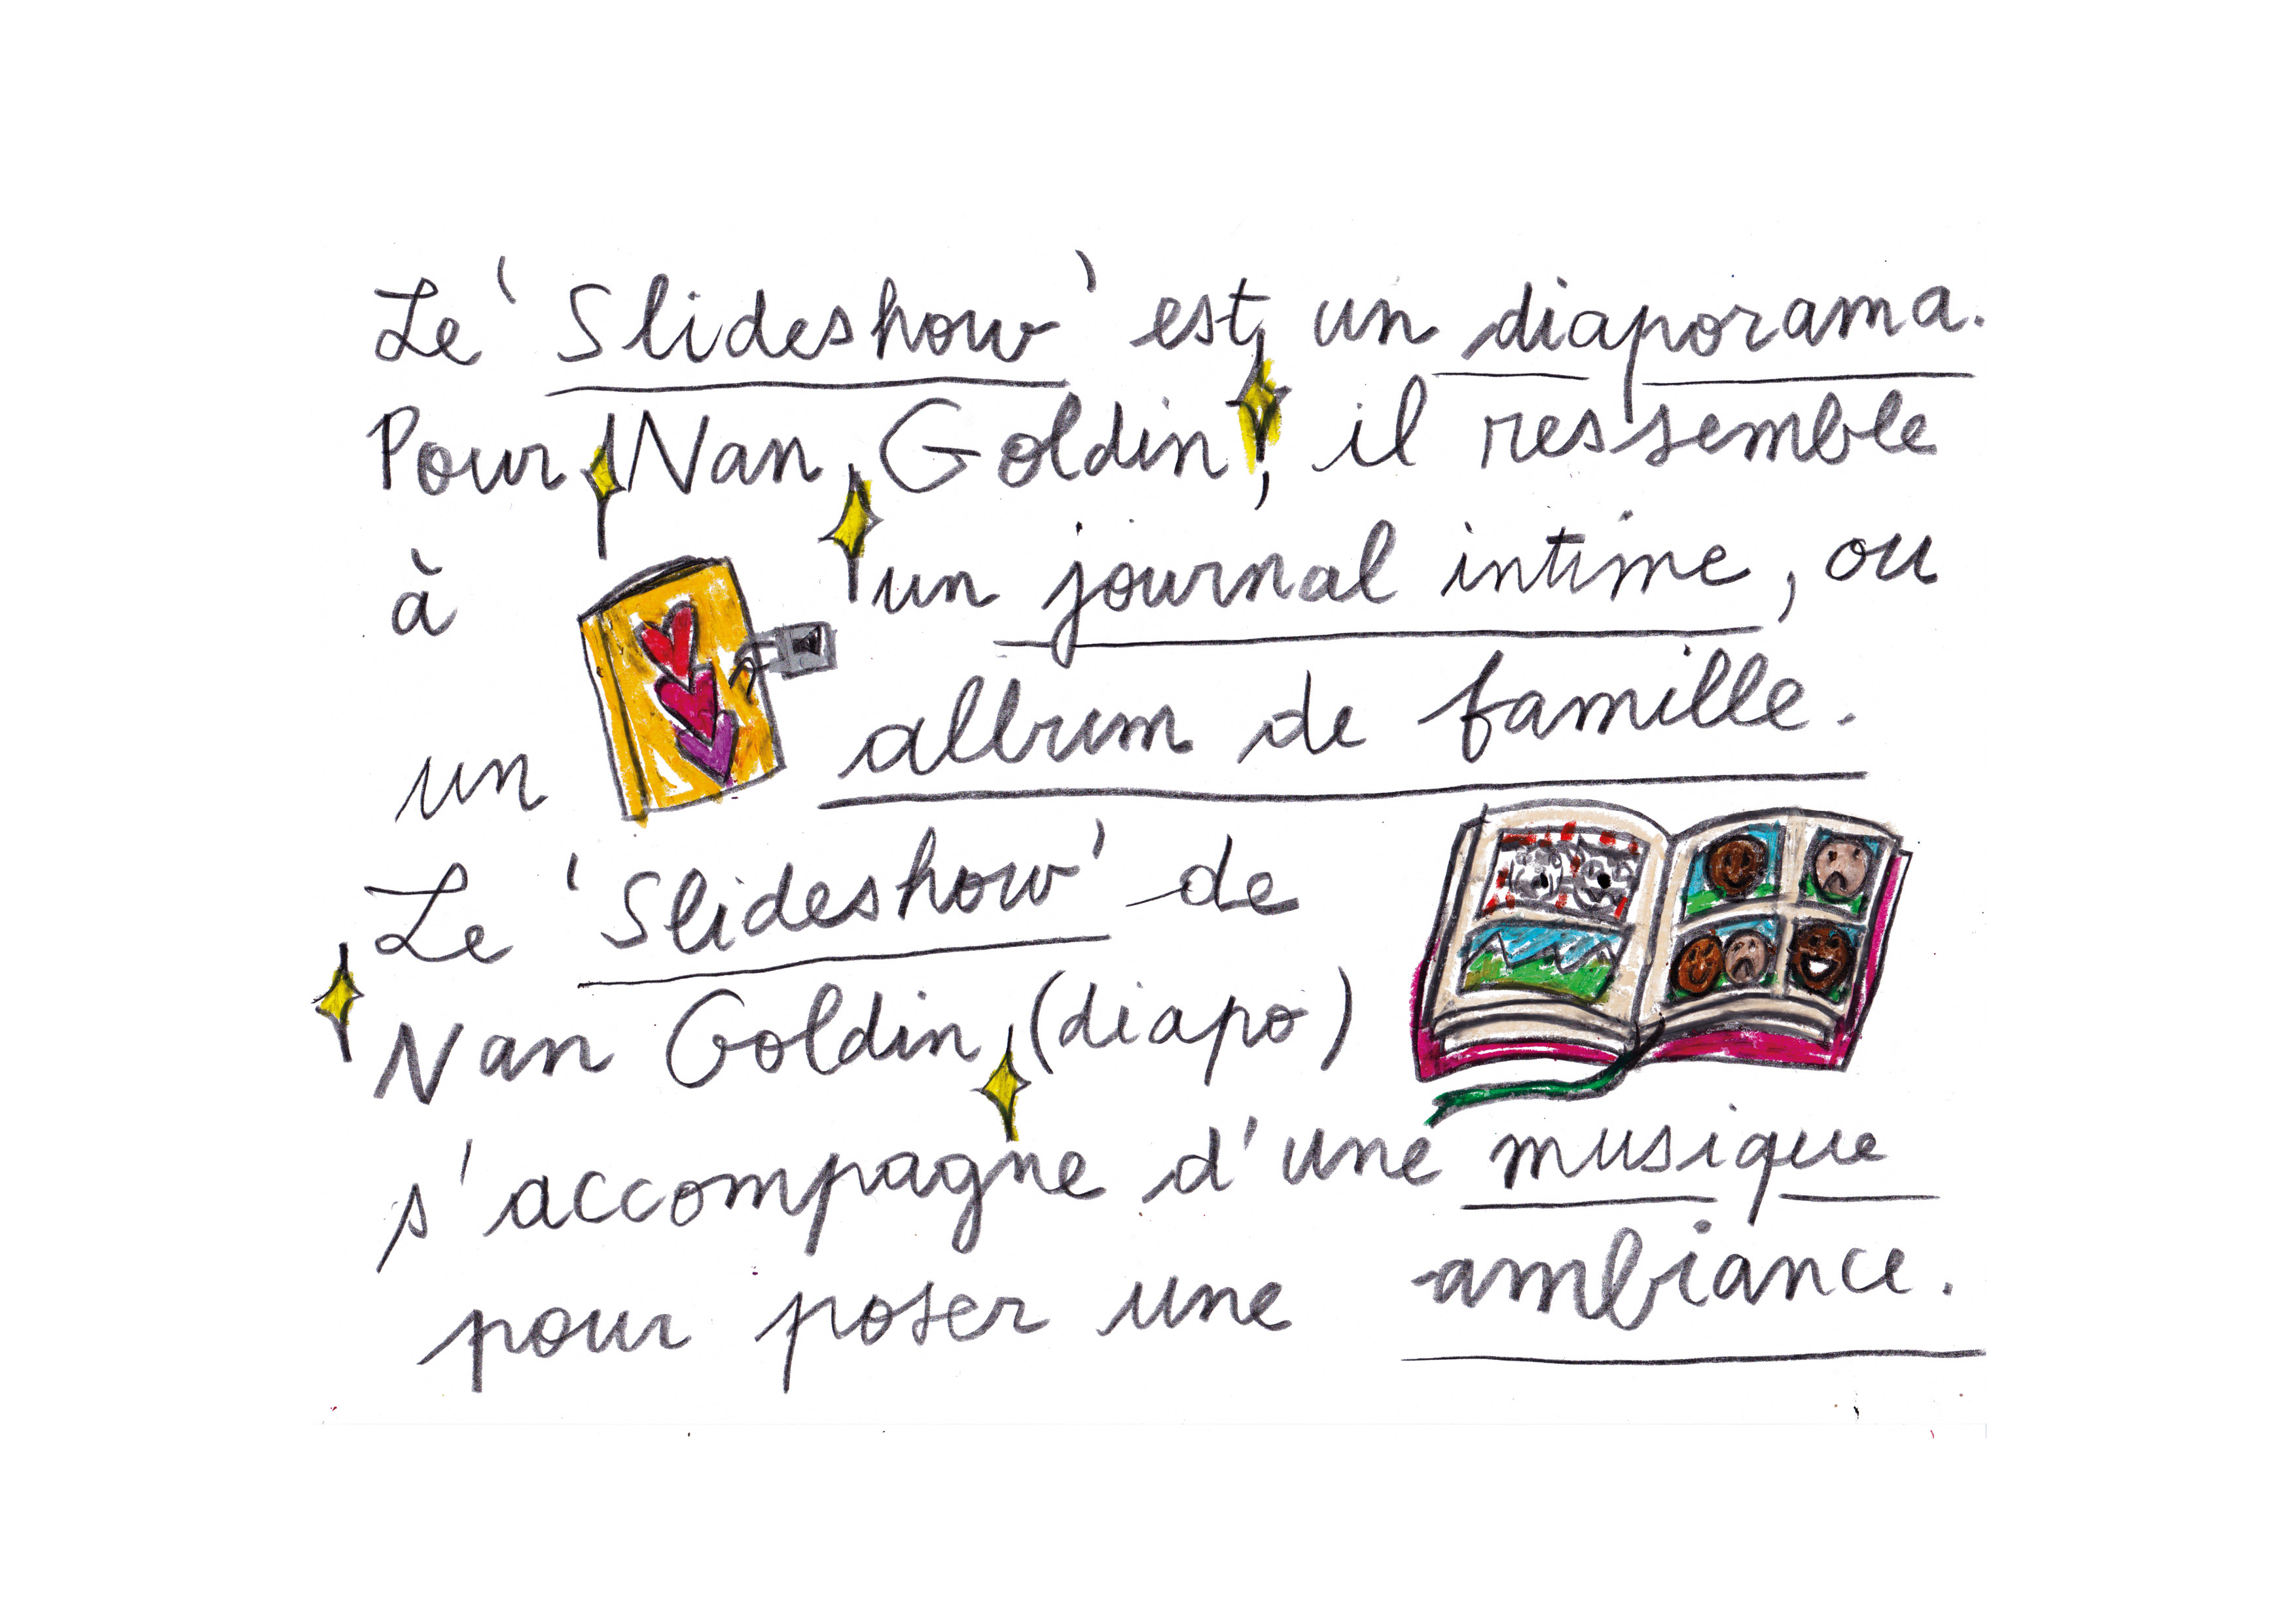 Le 'Slideshow' est un diaporama.
Pour Nan Goldin, il ressemble
à un journal intime, ou
un album de famille.
Le 'Slideshow' de
Nan Goldin (diapo)
s'accompagne d'une musique
pour poser une ambiance.